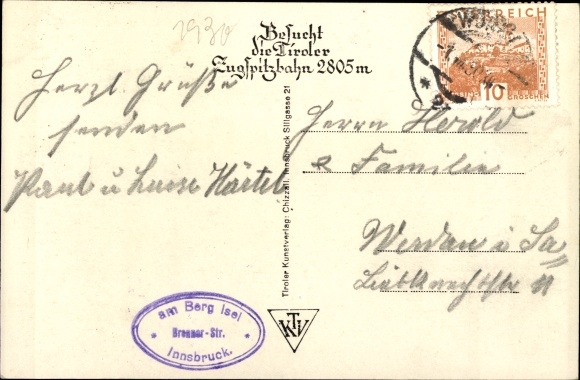 1930
Besucht
die Tiroler
Zugspitzbahn 2805m
ÖSTERREICH
10
GROSCHEN
Herzl. Grüße
senden
Paul u Luise Härtel
Herrn Herold
e Familie
Werdau i. Sa
Liebknechtstr 11
Tiroler Kunstverlag: Chizzali, Innsbruck Sillgasse 21
KTV
am Berg Isel
* Brenner-Str. *
Innsbruck.